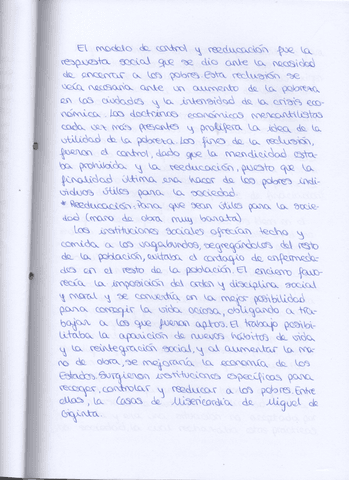 El modelo de control y reeducación fue la
respuesta social que se dio ante la necesidad
de encerrar a los pobres. Esta reclusión se
veía necesaria ante un aumento de la pobreza
en las ciudades y la intensidad de la crisis eco-
nómica. Las doctrinas económicas mercantilistas
cada vez más presentes y prolifera la idea de la
utilidad de la pobreza. Los fines de la reclusión,
fueron el control, dado que la mendicidad esta-
ba prohibida y la reeducación, puesto que la
finalidad última era hacer de los pobres indi-
viduos útiles para la sociedad.
* Reeducación: Para que sean útiles para la socie-
dad (mano de obra muy barata)
Las instituciones sociales ofrecían techo y
comida a los vagabundos, segregándolos del resto
de la población, evitaba el contagio de enfermeda-
des en el resto de la población. El encierro favo-
recía la imposición del orden y disciplina social
y moral y se convertía en la mejor posibilidad
para corregir la vida ociosa, obligando a tra-
bajar a los que fueran aptos. El trabajo posibi-
litaba la aparición de nuevos hábitos de vida
y la reintegración social, y al aumentar la ma-
no de obra, se mejoraría la economía de los
Estados. Surgieron instituciones específicas para
recoger, controlar y reeducar a los pobres. Entre
ellas, la Casas de Misericordia de Miguel de
Giginta.